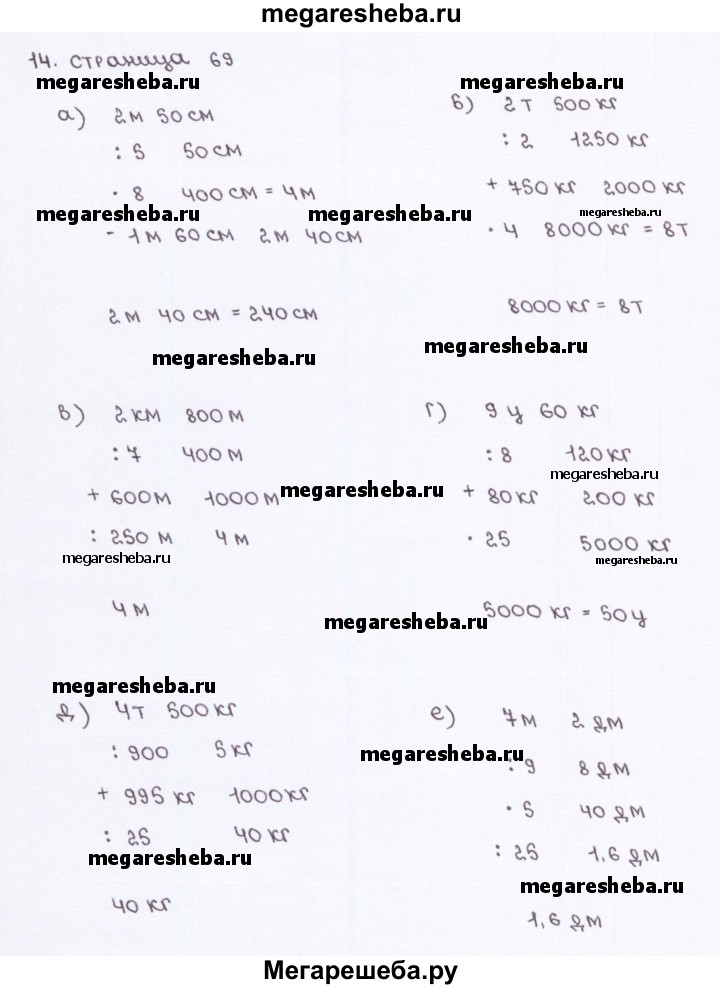 megaresheba.ru
14. страница 69
megaresheba.ru
megaresheba.ru
а) 2м 50см
: 5 50см
· 8 400см = 4м
megaresheba.ru
megaresheba.ru
- 1м 60см 2м 40см
2м 40см = 240см
megaresheba.ru
б) 2т 500кг
: 2 1250кг
+ 750кг 2000кг
megaresheba.ru
· 4 8000кг = 8т
8000кг = 8т
megaresheba.ru
в) 2км 800м
: 7 400м
+ 600м 1000м
megaresheba.ru
: 250м 4м
megaresheba.ru
4м
г) 9ц 60кг
: 8 120кг
megaresheba.ru
+ 80кг 200кг
· 25 5000кг
megaresheba.ru
megaresheba.ru
5000кг = 50ц
megaresheba.ru
д) 4т 500кг
: 900 5кг
+ 995кг 1000кг
: 25 40кг
megaresheba.ru
40кг
е) 7м 2дм
megaresheba.ru
: 9 8дм
· 5 40дм
: 25 1,6дм
megaresheba.ru
1,6дм
Мегарешеба.ру